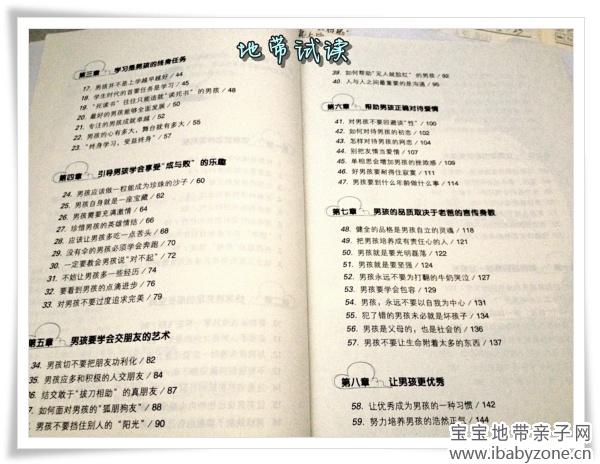 地带试读
第三章 学习是男孩的终身任务
17. 男孩并不是上学越早越好 / 44
18. 学生时代的首要任务是学习 / 45
19. “死读书”往往只能造就“读死书”的男孩 / 48
20. 最好的男孩能够全面发展 / 50
21. 专注的男孩成就卓越 / 52
22. 男孩的心有多大，舞台就有多大 / 55
23. “终身学习，受益终身” / 57
第四章 引导男孩学会享受“成与败”的乐趣
24. 男孩应该做一粒能成为珍珠的沙子 / 60
25. 男孩自身就是一座宝藏 / 62
26. 男孩需要充满激情 / 64
27. 珍惜男孩的英雄情结 / 66
28. 应该让男孩多吃一点苦头 / 68
29. 没有伞的男孩必须学会奔跑 / 70
30. 一定要教会男孩说“对不起” / 72
31. 不妨让男孩多一些经历 / 74
32. 要看到男孩的点滴进步 / 76
33. 对男孩不要过度追求完美 / 79
第五章 男孩要学会交朋友的艺术
34. 男孩切不要把朋友功利化 / 82
35. 男孩应多和积极的人交朋友 / 84
36. 结交敢于“拔刀相助”的真朋友 / 87
37. 如何面对男孩的“狐朋狗友” / 88
男孩不要挡住别人的“阳光” / 90
39. 如何帮助“见人就脸红”的男孩 / 92
40. 人与人之间最重要的是沟通 / 95
第六章 帮助男孩正确对待爱情
41. 对男孩不要回避谈“性” / 100
42. 如何对待男孩的初恋 / 102
43. 怎样对待男孩的网恋 / 105
44. 别把友情当爱情 / 107
45. 单相思会增加男孩的挫败感 / 109
46. 好男孩要耐得住寂寞 / 111
47. 男孩要到什么年龄做什么事 / 114
第七章 男孩的品质取决于老爸的言传身教
48. 健全的品格是男孩自立的灵魂 / 118
49. 把男孩培养成有责任心的人 / 121
50. 男孩就是要光明磊落 / 122
51. 男孩就是要坚强 / 124
52. 男孩永远不要为打翻的牛奶哭泣 / 127
53. 男孩要学会包容 / 129
54. 男孩，永远不要以自我为中心 / 131
55. 犯了错的男孩未必就是坏孩子 / 134
56. 男孩是父母的，也是社会的 / 136
57. 男孩不要让生命附着太多的东西 / 137
第八章 让男孩更优秀
58. 让优秀成为男孩的一种习惯 / 142
59. 努力培养男孩的浩然正气 / 144
宝宝地带亲子网
www.ibabyzone.cn